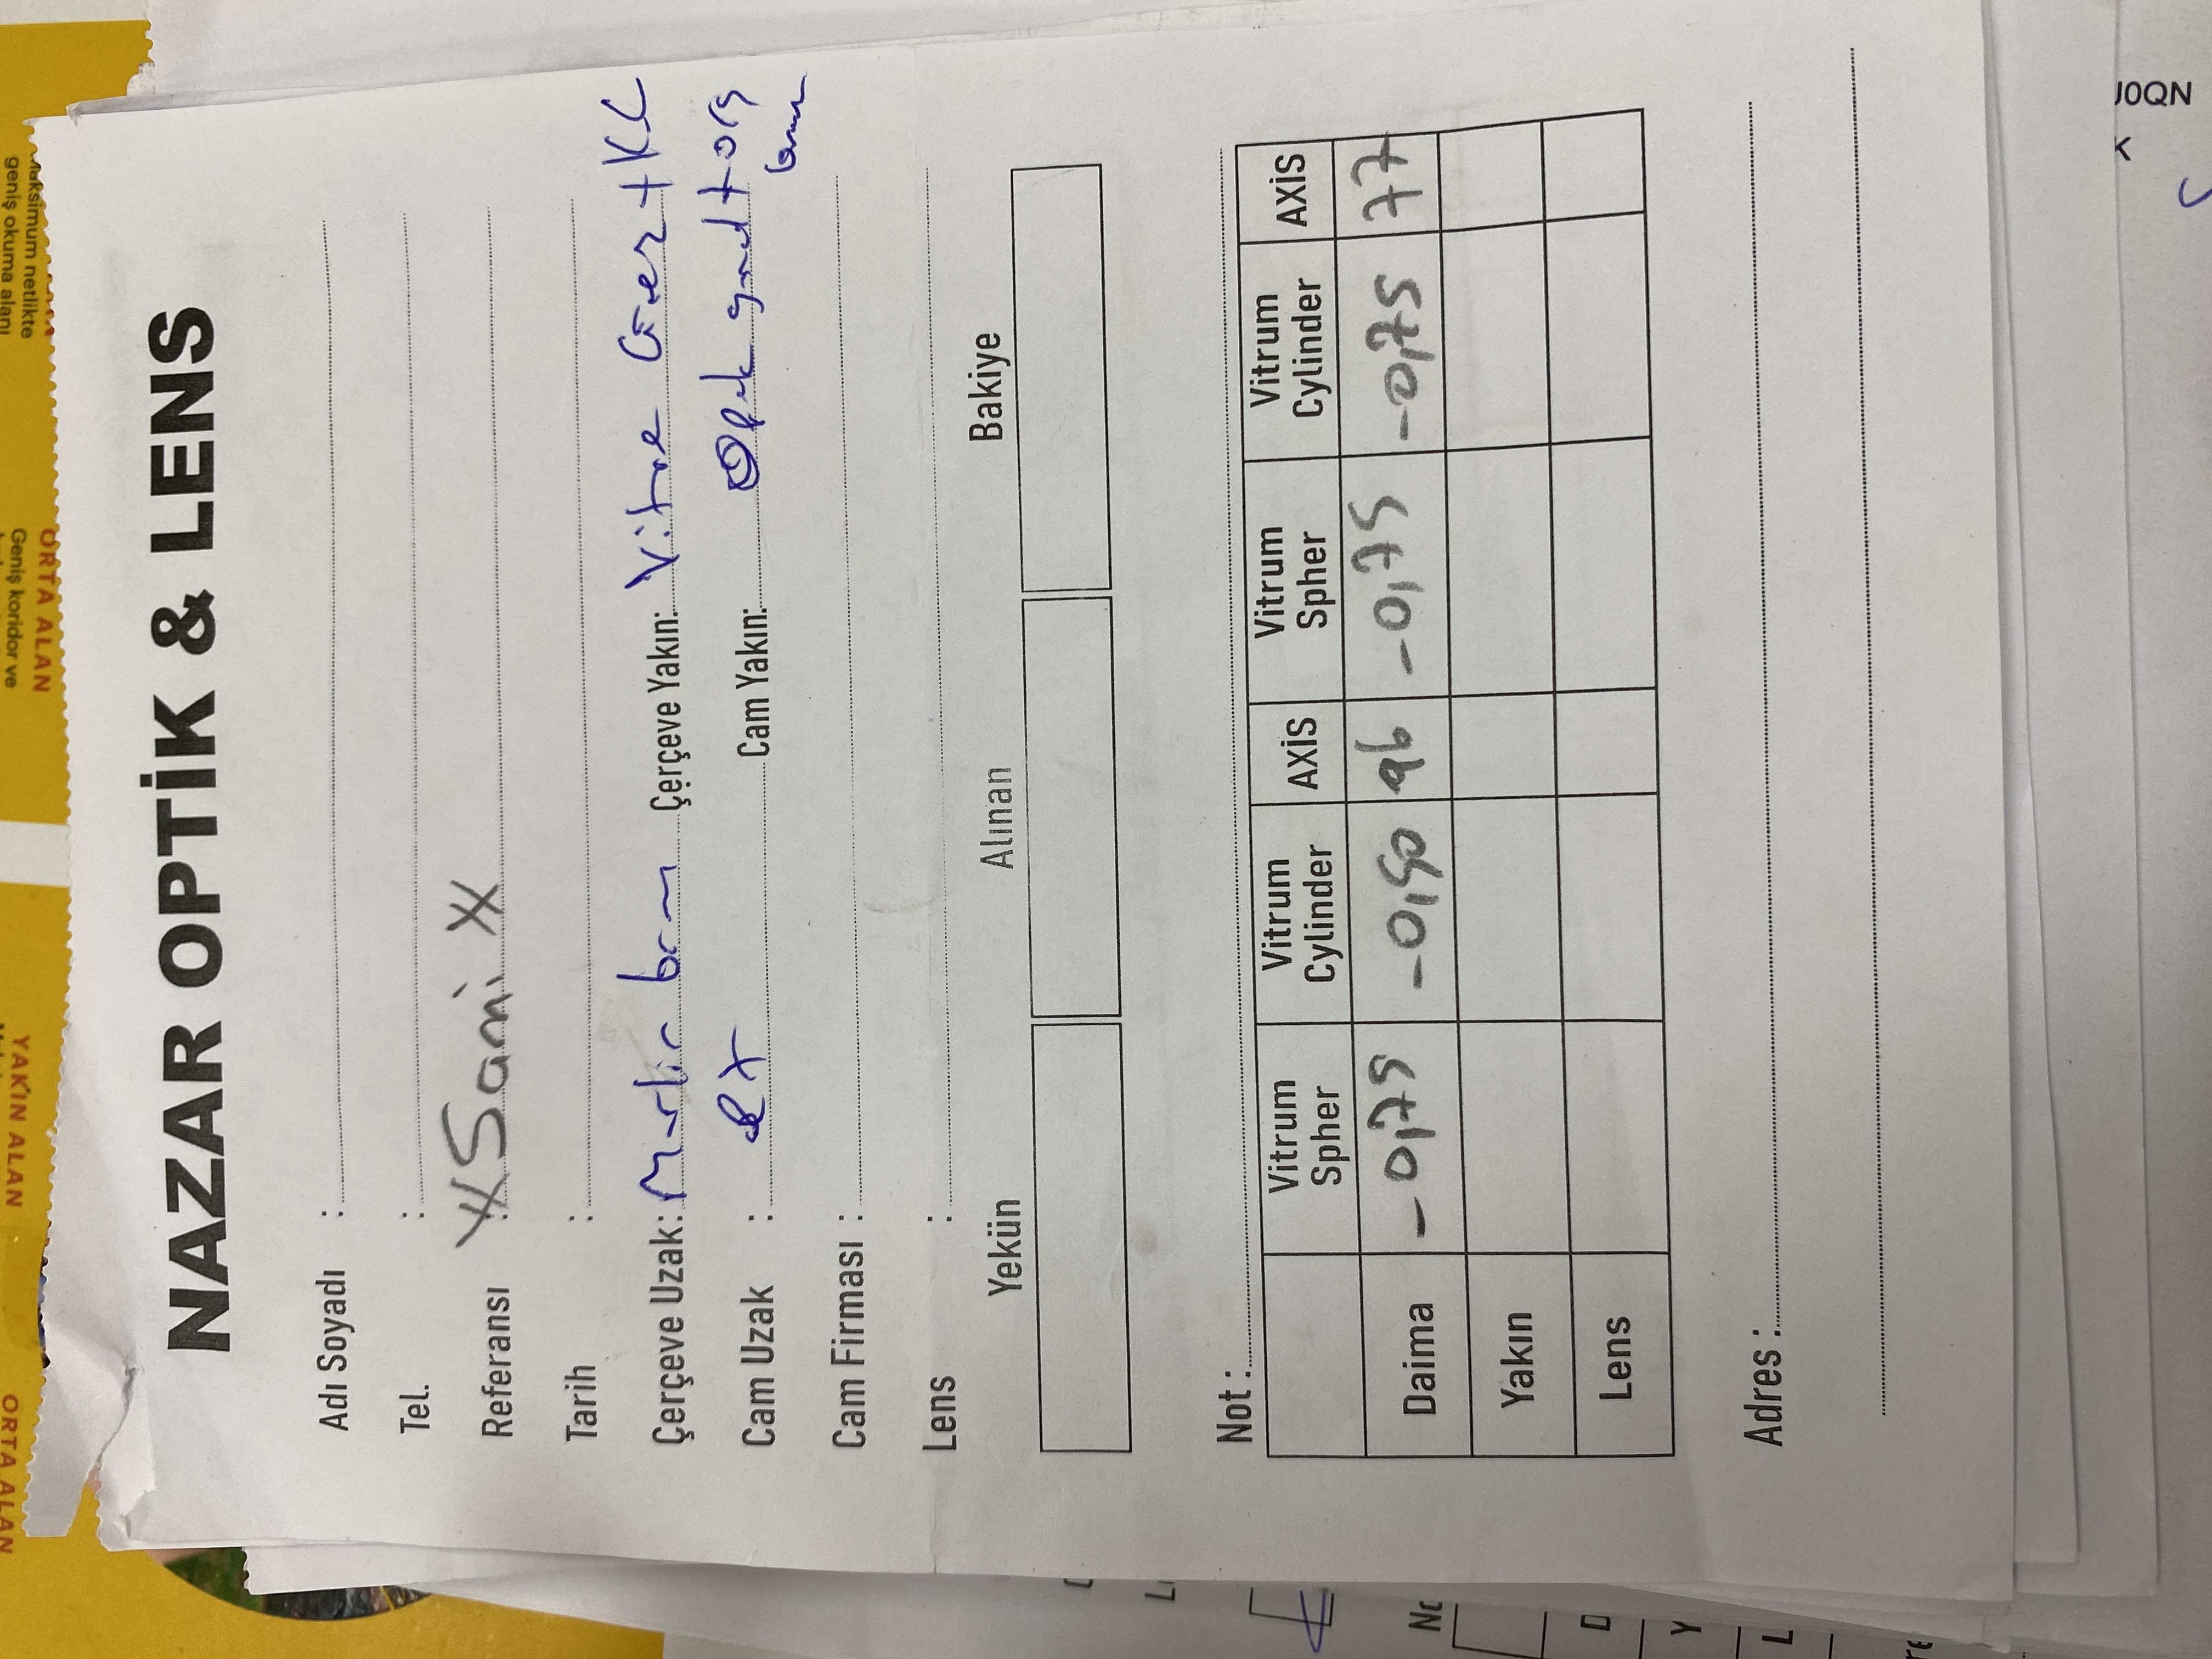 ORTA ALAN
YAKIN ALAN
Geniş koridor ve
ORTA ALAN
geniş okuma alanı
Maksimum netlikte
NAZAR OPTİK & LENS
Adı Soyadı :
Tel. :
Referansı : Sami
Tarih :
Çerçeve Uzak: Çerçeve Yakın: Vitre + KC
Cam Uzak : Cam Yakın:
Cam Firması :
Lens :
Yekün Alınan Bakiye
Not :
Vitrum Spher Vitrum Cylinder AXİS Vitrum Spher Vitrum Cylinder AXİS
Daima -0,75 -0,50 96 -0,75 -0,75 77
Yakın
Lens
Adres :